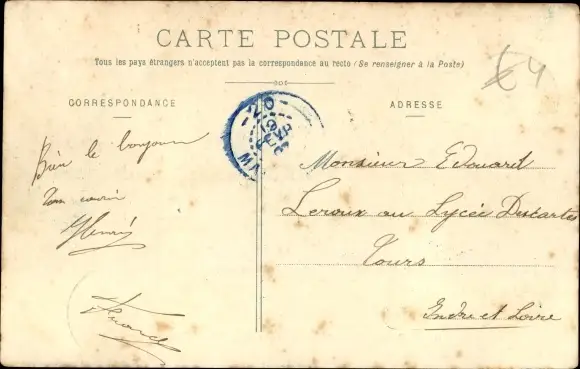 CARTE POSTALE
Tous les pays étrangers n'acceptent pas la correspondance au recto (Se renseigner à la Poste)
CORRESPONDANCE
ADRESSE
Bien le bonjour
Ton cousin
Henri
Monsieur Edouard
Leroux au Lycée Descartes
Tours
Indre et Loire